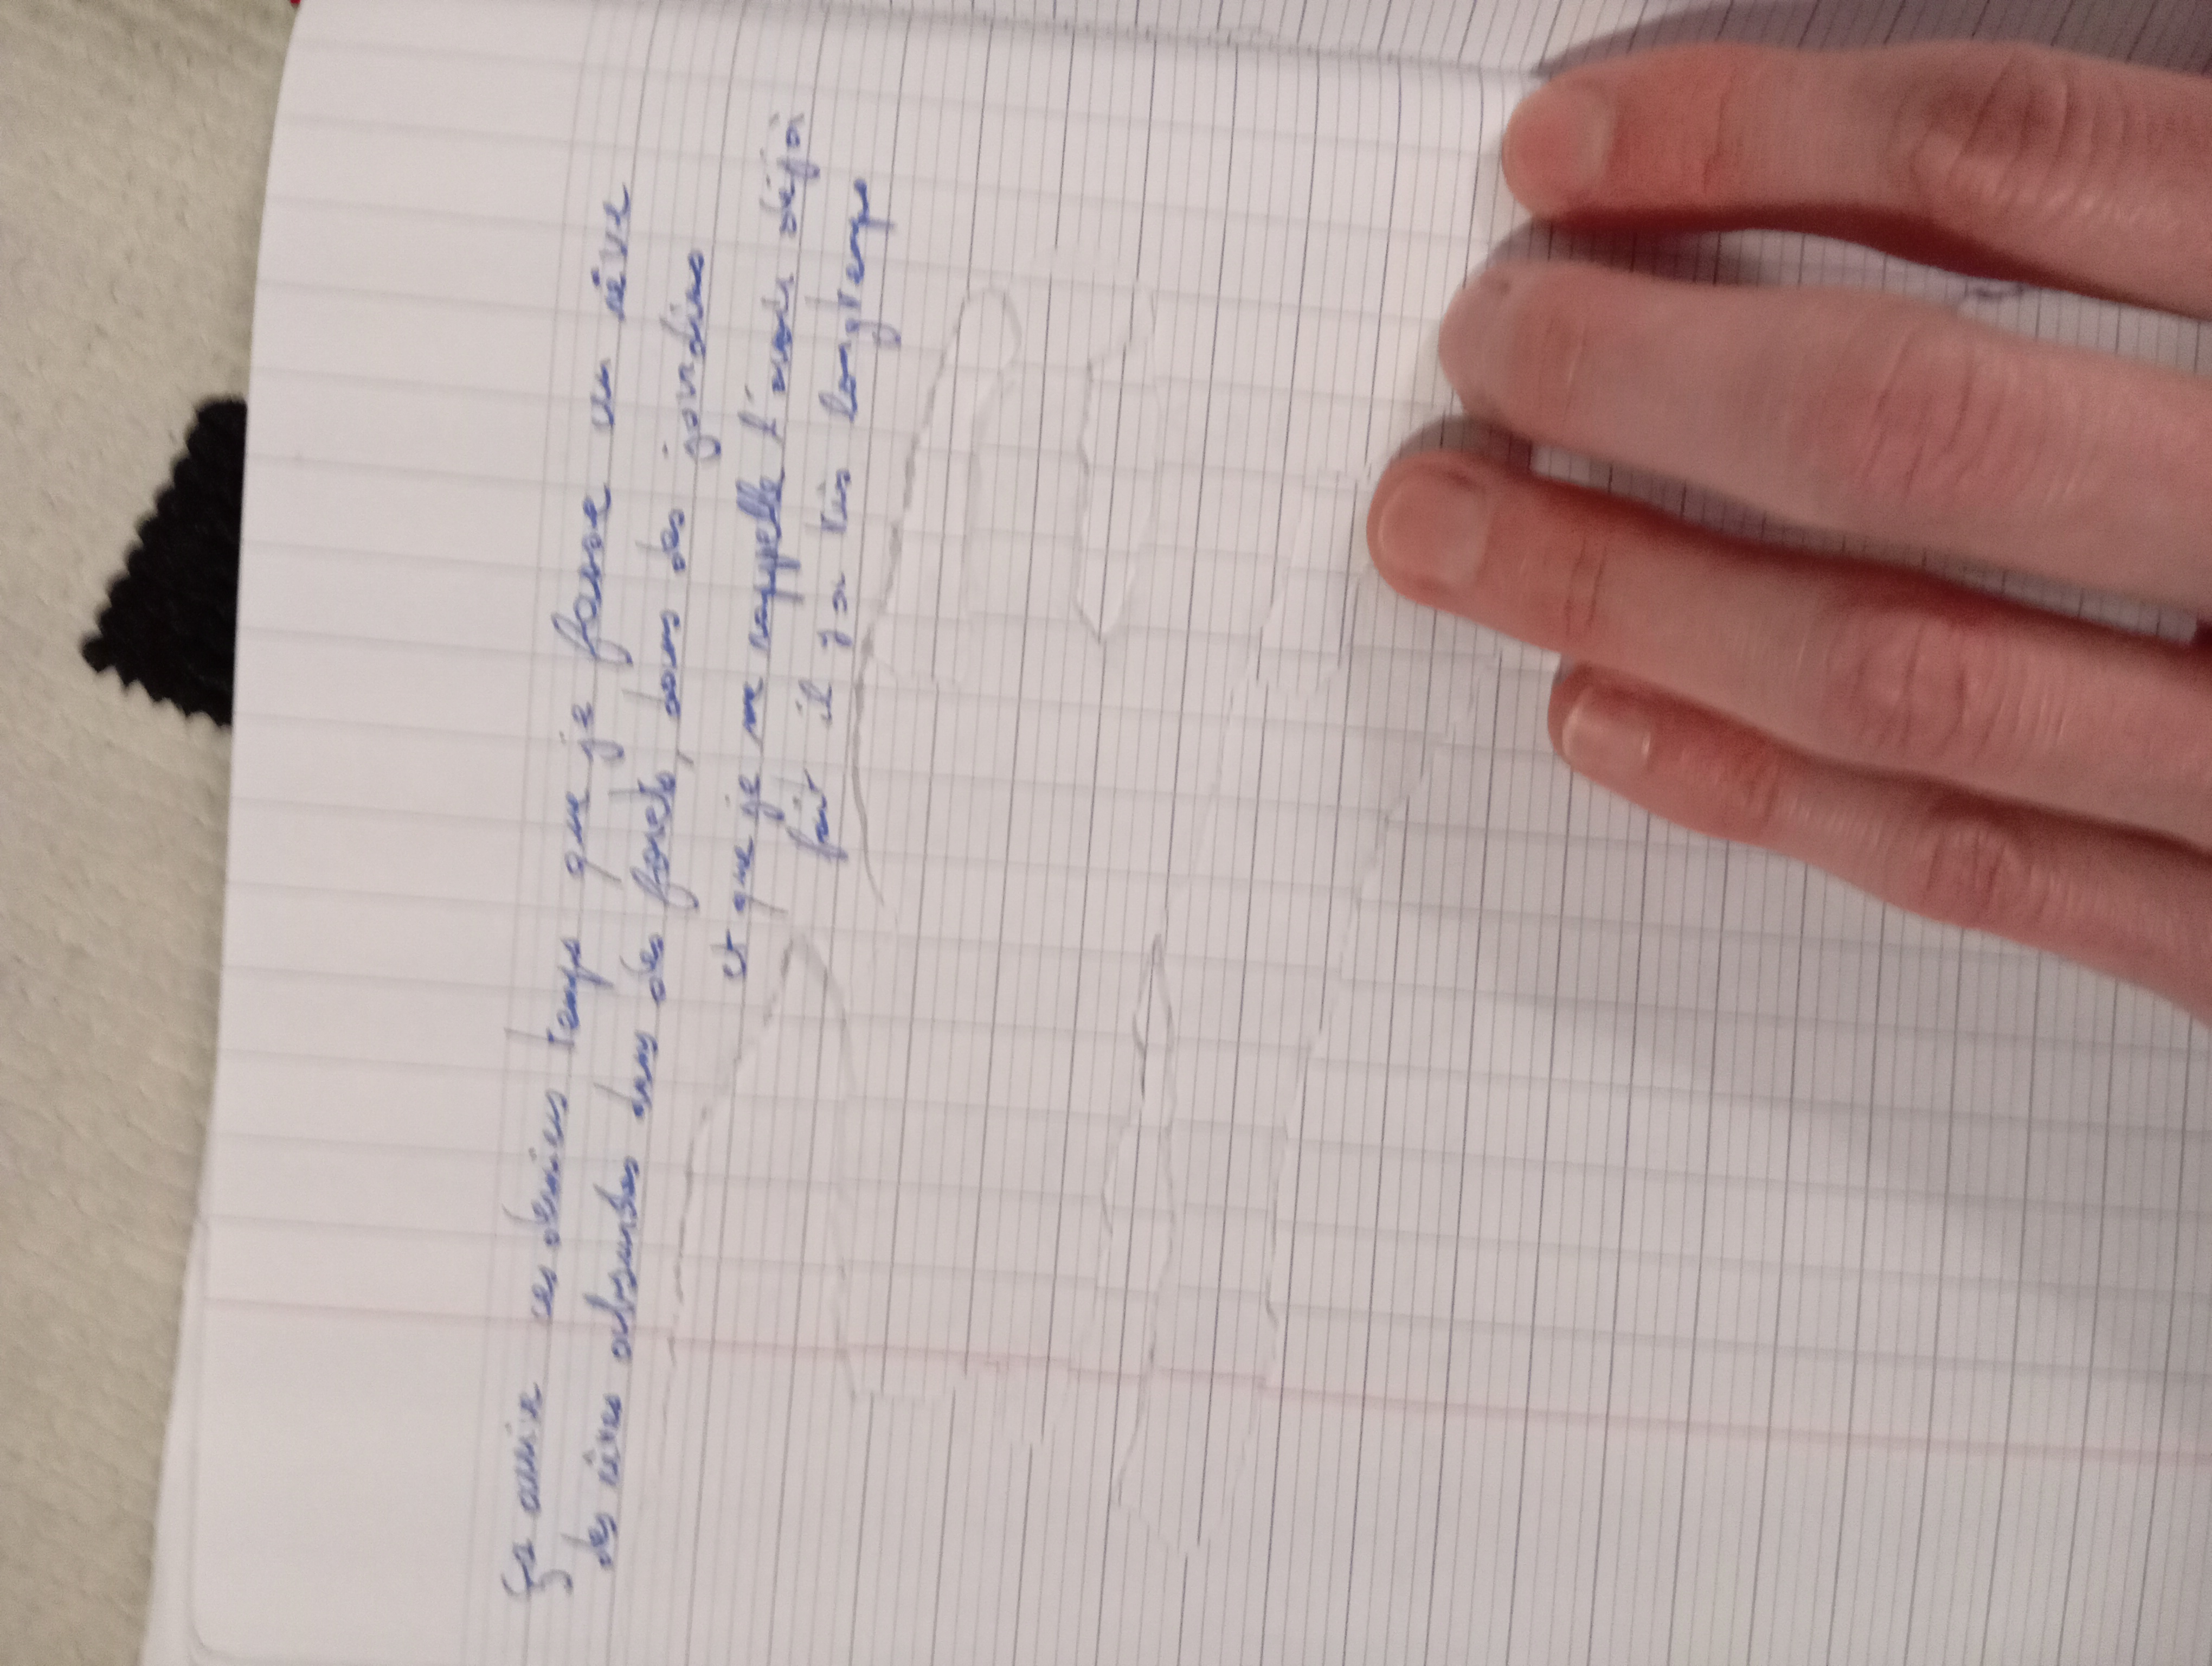 ça arrive ces derniers temps que je fasse un rêve
des rêves absurdes dans des forets, dans des jardins
et que je me rappelle l'avoir déjà
fait il y a très longtemps